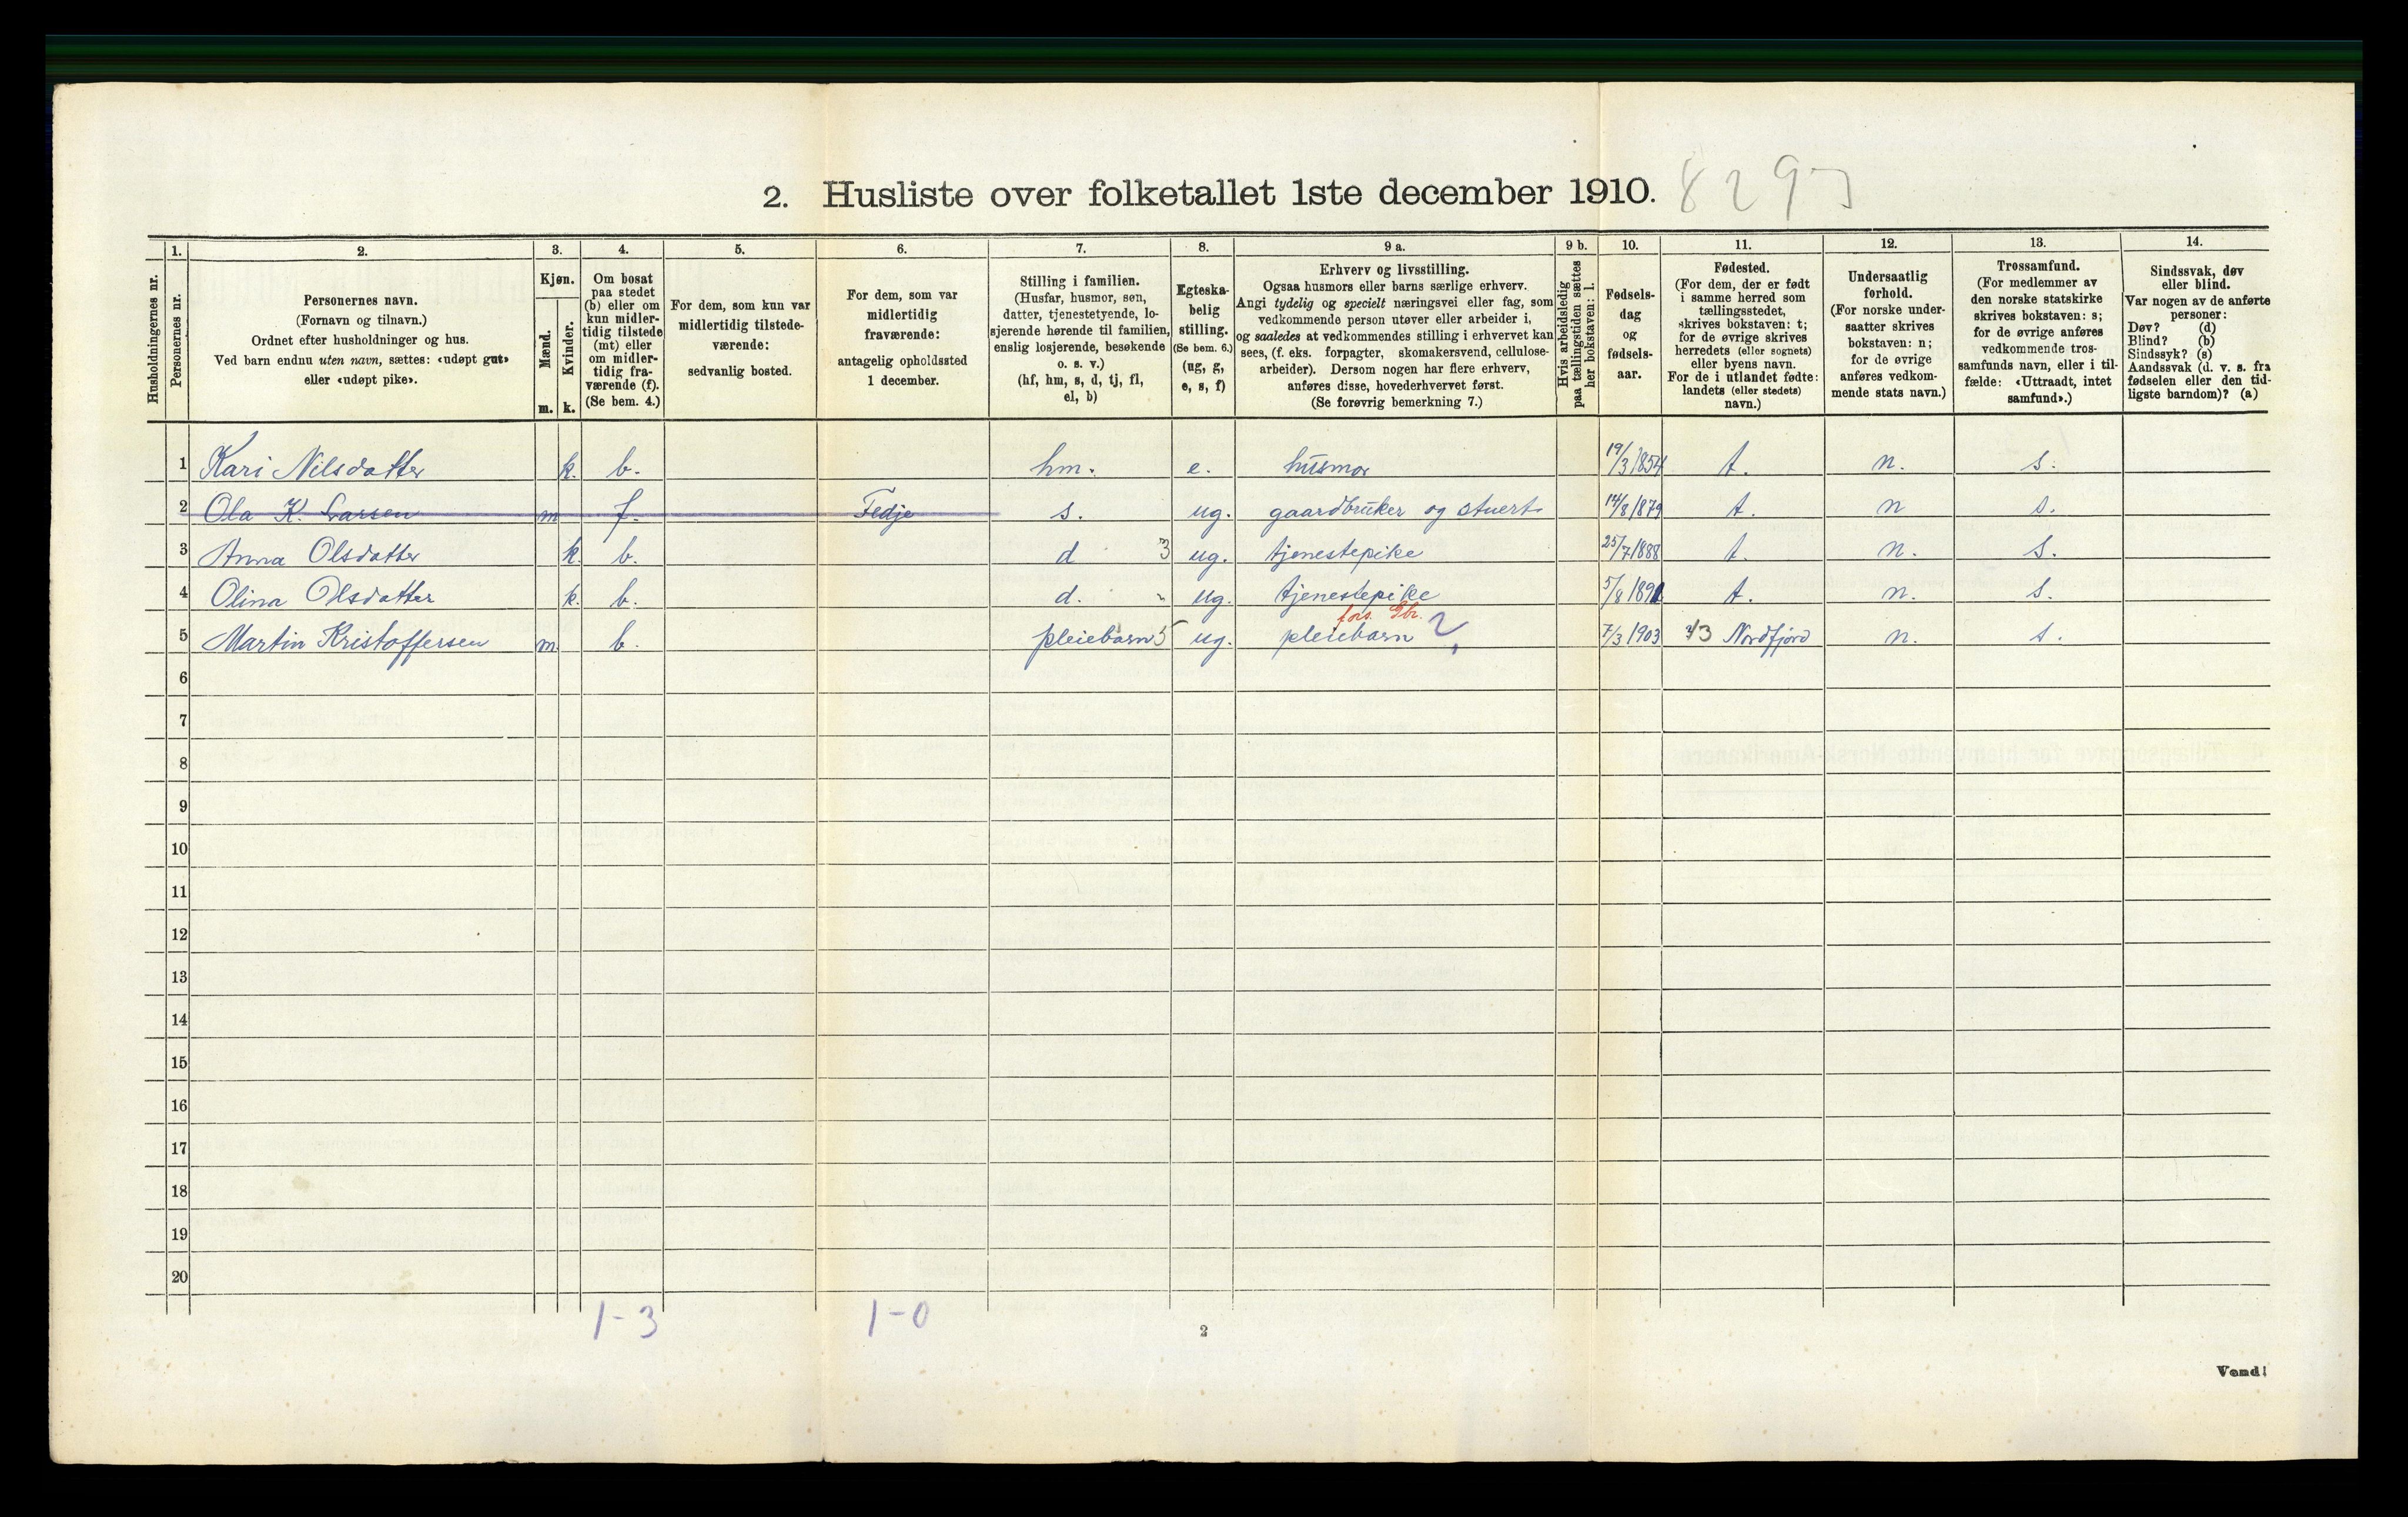 2. Husliste over folketallet 1ste december 1910. 829
1. 2. 3. 4. 5. 6. 7. 8. 9 a. 9 b. 10. 11. 12. 13. 14.
Husholdningernes nr.
Personernes nr.
Personernes navn.
(Fornavn og tilnavn.)
Ordnet efter husholdninger og hus.
Ved barn endnu uten navn, sættes: «udøpt gut»
eller «udøpt pike».
Kjøn.
Mænd.
Kvinder.
m. k.
Om bosat
paa stedet
(b) eller om
kun midler-
tidig tilstede
(mt) eller
om midler-
tidig fra-
værende (f).
(Se bem. 4.)
For dem, som kun var
midlertidig tilstede-
værende:
sedvanlig bosted.
For dem, som var
midlertidig
fraværende:
antagelig opholdssted
1 december.
Stilling i familien.
(Husfar, husmor, søn,
datter, tjenestetyende, lo-
sjerende hørende til familien,
enslig losjerende, besøkende
o. s. v.)
(hf, hm, s, d, tj, fl,
el, b)
Egteska-
belig
stilling.
(Se bem. 6.)
(ug, g,
e, s, f)
Erhverv og livsstilling.
Ogsaa husmors eller barns særlige erhverv.
Angi tydelig og specielt næringsvei eller fag, som
vedkommende person utøver eller arbeider i,
og saaledes at vedkommendes stilling i erhvervet kan
sees, (f. eks. forpagter, skomakersvend, cellulose-
arbeider). Dersom nogen har flere erhverv,
anføres disse, hovederhvervet først.
(Se forøvrig bemerkning 7.)
Hvis arbeidsledig
paa tællingstiden sættes
her bokstaven: l.
Fødsels-
dag
og
fødsels-
aar.
Fødested.
(For dem, der er født
i samme herred som
tællingsstedet,
skrives bokstaven: t;
for de øvrige skrives
herredets (eller sognets)
eller byens navn.
For de i utlandet fødte:
landets (eller stedets)
navn.)
Undersaatlig
forhold.
(For norske under-
saatter skrives
bokstaven: n;
for de øvrige
anføres vedkom-
mende stats navn.)
Trossamfund.
(For medlemmer av
den norske statskirke
skrives bokstaven: s;
for de øvrige anføres
vedkommende tros-
samfunds navn, eller i til-
fælde: «Uttraadt, intet
samfund».)
Sindssvak, døv
eller blind.
Var nogen av de anførte
personer:
Døv? (d)
Blind? (b)
Sindssyk? (s)
Aandssvak (d. v. s. fra
fødselen eller den tid-
ligste barndom)? (a)
1 Kari Nilsdatter k. b. hm. e. husmor 19/3 1854 t. n. s.
2 Ola K. Larsen m f. Fedje s. ug. gaardbruker og stuert 14/8 1879 t. n s.
3 Anna Olsdatter k. b. d 3 ug. tjenestepike 25/7 1888 t. n. s.
4 Olina Olsdatter k. b. d. - ug. tjenestepike 5/8 1891 t. n. s.
fors. Gbr.
5 Martin Kristoffersen m. b. pleiebarn 5 ug. pleiebarn 2 7/3 1903 Nordfjord n. s.
6
7
8
9
10
11
12
13
14
15
16
17
18
19
20
1-3 1-0
2
Vend!